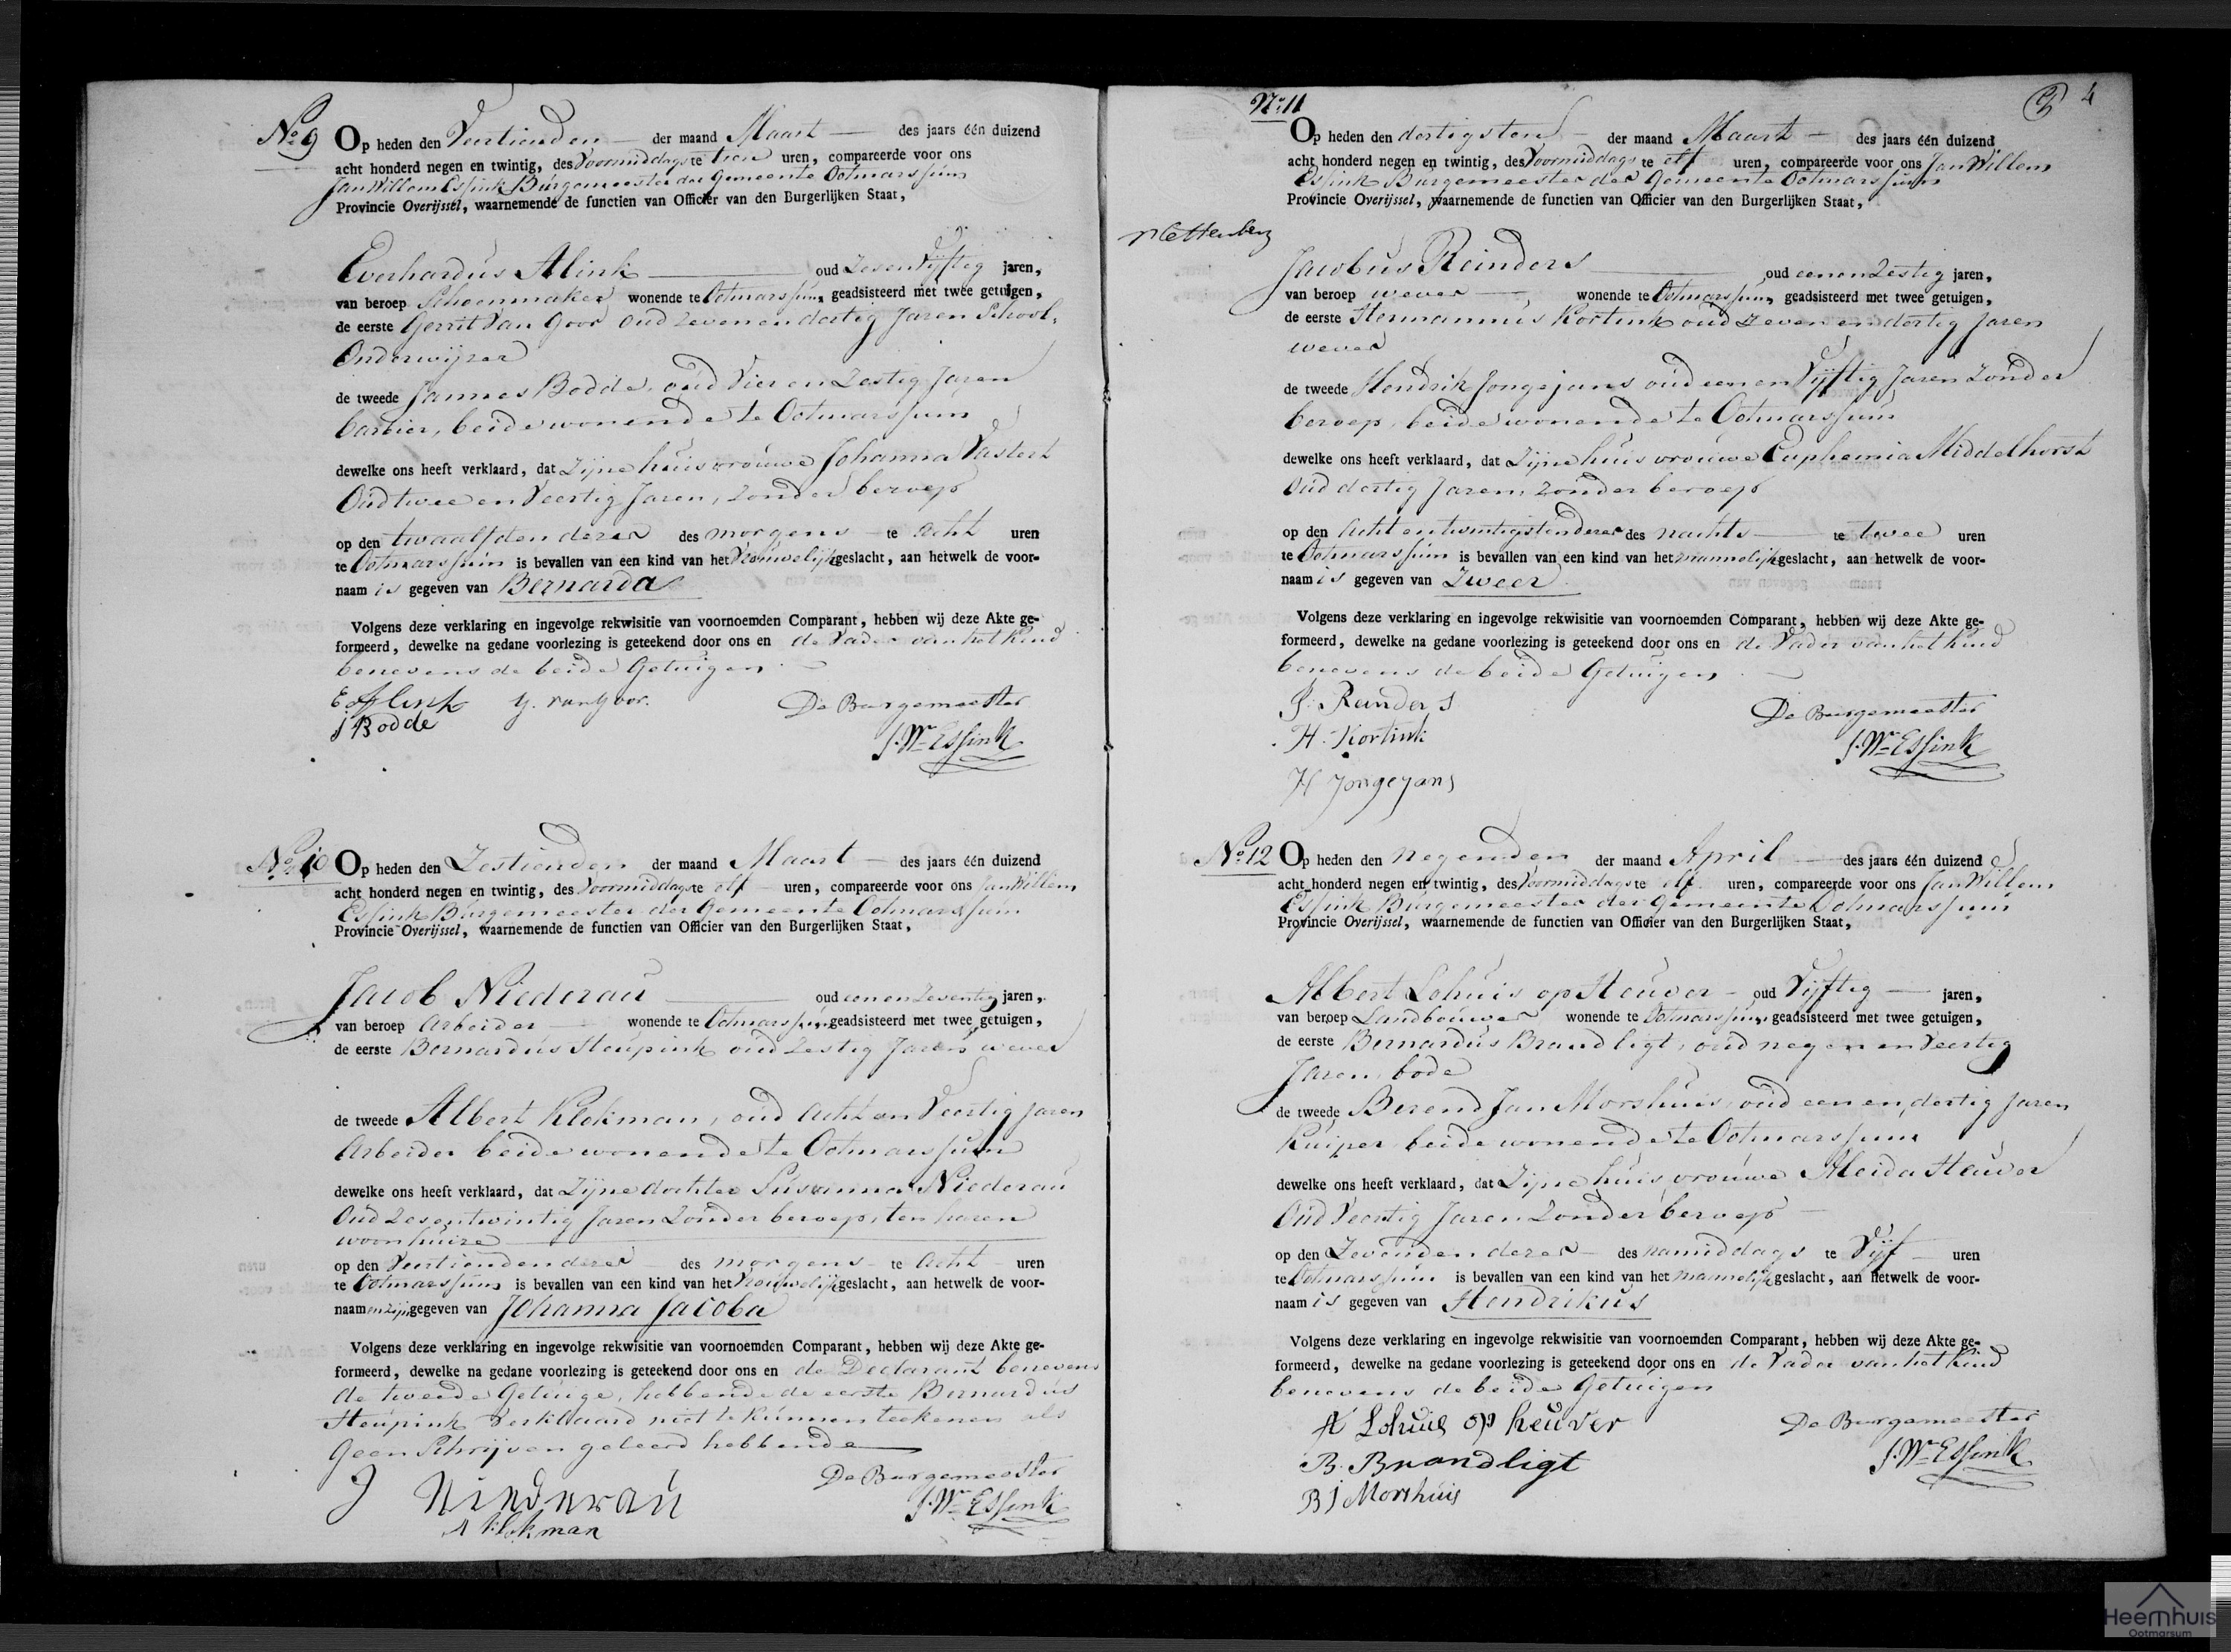 No 9 Op heden den Veertienden der maand Maart des jaars één duizend
acht honderd negen en twintig, des Voormiddags te tien uren, compareerde voor ons
Jan Willem Essink Burgemeester der Gemeente Ootmarssum
Provincie Overijssel, waarnemende de functien van Officier van den Burgerlijken Staat,
Everhardus Alink oud Zesenvijftig jaren,
van beroep Schoenmaker wonende te Ootmarssum, geadsisteerd met twee getuigen,
de eerste Gerrit van Goor oud Zevenendertig Jaren School-
Onderwijzer
de tweede Jannes Bodde, oud Vier en Zestig Jaren
barbier, beide wonende te Ootmarssum
dewelke ons heeft verklaard, dat Zijne huisvrouwe Johanna Vastert
Oud twee en Veertig Jaren, zonder beroep
op den twaalfden dezer des morgens te acht uren
te Ootmarssum is bevallen van een kind van het Vrouwelijk geslacht, aan hetwelk de voor-
naam is gegeven van Bernarda
Volgens deze verklaring en ingevolge rekwisitie van voornoemden Comparant, hebben wij deze Akte ge-
formeerd, dewelke na gedane voorlezing is geteekend door ons en de Vader van het Kind
benevens de beide Getuigen
E Alink G. van Goor. De Burgemeester
J Bodde J. Wm Essink
No 10 Op heden den Zestienden der maand Maart des jaars één duizend
acht honderd negen en twintig, des Voormiddags te elf uren, compareerde voor ons Jan Willem
Essink Burgemeester der Gemeente Ootmarssum
Provincie Overijssel, waarnemende de functien van Officier van den Burgerlijken Staat,
Jacob Niederau oud eenenzeventig jaren,
van beroep Arbeider wonende te Ootmarssum, geadsisteerd met twee getuigen,
de eerste Bernardus Heupink oud Zestig Jaren wever
de tweede Albert Klokman, oud acht en Veertig Jaren
Arbeider beide wonende te Ootmarssum
dewelke ons heeft verklaard, dat Zijne dochter Susanna Niederau
Oud Zesentwintig Jaren Zonder beroep, ten haren
woonhuize
op den Veertienden dezer des morgens te acht uren
te Ootmarssum is bevallen van een kind van het Vrouwelijk geslacht, aan hetwelk de voor-
naamen zijn gegeven van Johanna Jacoba
Volgens deze verklaring en ingevolge rekwisitie van voornoemden Comparant, hebben wij deze Akte ge-
formeerd, dewelke na gedane voorlezing is geteekend door ons en de Declarant benevens
de tweede Getuige, hebbende de eerste Bernardus
Heupink Verklaard niet te kunnen teekenen als
Geen Schrijven geleerd hebbende
J Niederau De Burgemeester
A Klokman J. Wm Essink
4
No 11
Op heden den dertigsten der maand Maart des jaars één duizend
acht honderd negen en twintig, des Voormiddags te elf uren, compareerde voor ons Jan Willem
Essink Burgemeester der Gemeente Ootmarssum
Provincie Overijssel, waarnemende de functien van Officier van den Burgerlijken Staat,
Plettenberg
Jacobus Reinders oud eenenzestig jaren,
van beroep wever wonende te Ootmarssum, geadsisteerd met twee getuigen,
de eerste Hermannus Kortink oud Zeven en dertig Jaren
wever
de tweede Hendrik Jongejans oud een en Vijftig Jaren Zonder
beroep, beide wonende te Ootmarssum
dewelke ons heeft verklaard, dat Zijne huisvrouwe Euphemia Middelhorst
Oud dertig Jaren, Zonder beroep
op den Acht en twintigsten dezer des nachts te twee uren
te Ootmarssum is bevallen van een kind van het mannelijk geslacht, aan hetwelk de voor-
naam is gegeven van Zweer
Volgens deze verklaring en ingevolge rekwisitie van voornoemden Comparant, hebben wij deze Akte ge-
formeerd, dewelke na gedane voorlezing is geteekend door ons en de Vader van het Kind
benevens de beide Getuigen
J. Reinders De Burgemeester
H. Kortink J. Wm Essink
H Jongejans
No 12 Op heden den Negenden der maand April des jaars één duizend
acht honderd negen en twintig, des Voormiddags te elf uren, compareerde voor ons Jan Willem
Essink Burgemeester der Gemeente Ootmarssum
Provincie Overijssel, waarnemende de functien van Officier van den Burgerlijken Staat,
Albert Lohuis op Heuver oud Vijftig jaren,
van beroep Landbouwer wonende te Ootmarssum, geadsisteerd met twee getuigen,
de eerste Bernardus Brandligt, oud negen en Veertig
Jaren, bode
de tweede Berend Jan Morshuis, oud een en dertig Jaren
Kuiper beide wonende te Ootmarssum
dewelke ons heeft verklaard, dat Zijne huisvrouwe Aleida Heuver
Oud Veertig Jaren Zonder beroep
op den Zevenden dezer des namiddags te Vijf uren
te Ootmarssum is bevallen van een kind van het mannelijk geslacht, aan hetwelk de voor-
naam is gegeven van Hendrikus
Volgens deze verklaring en ingevolge rekwisitie van voornoemden Comparant, hebben wij deze Akte ge-
formeerd, dewelke na gedane voorlezing is geteekend door ons en de Vader van het Kind
benevens de beide Getuigen
A Lohuis op heuver De Burgemeester
B. Brandligt J. Wm Essink
B J Morshuis
Heemhuis
Ootmarsum